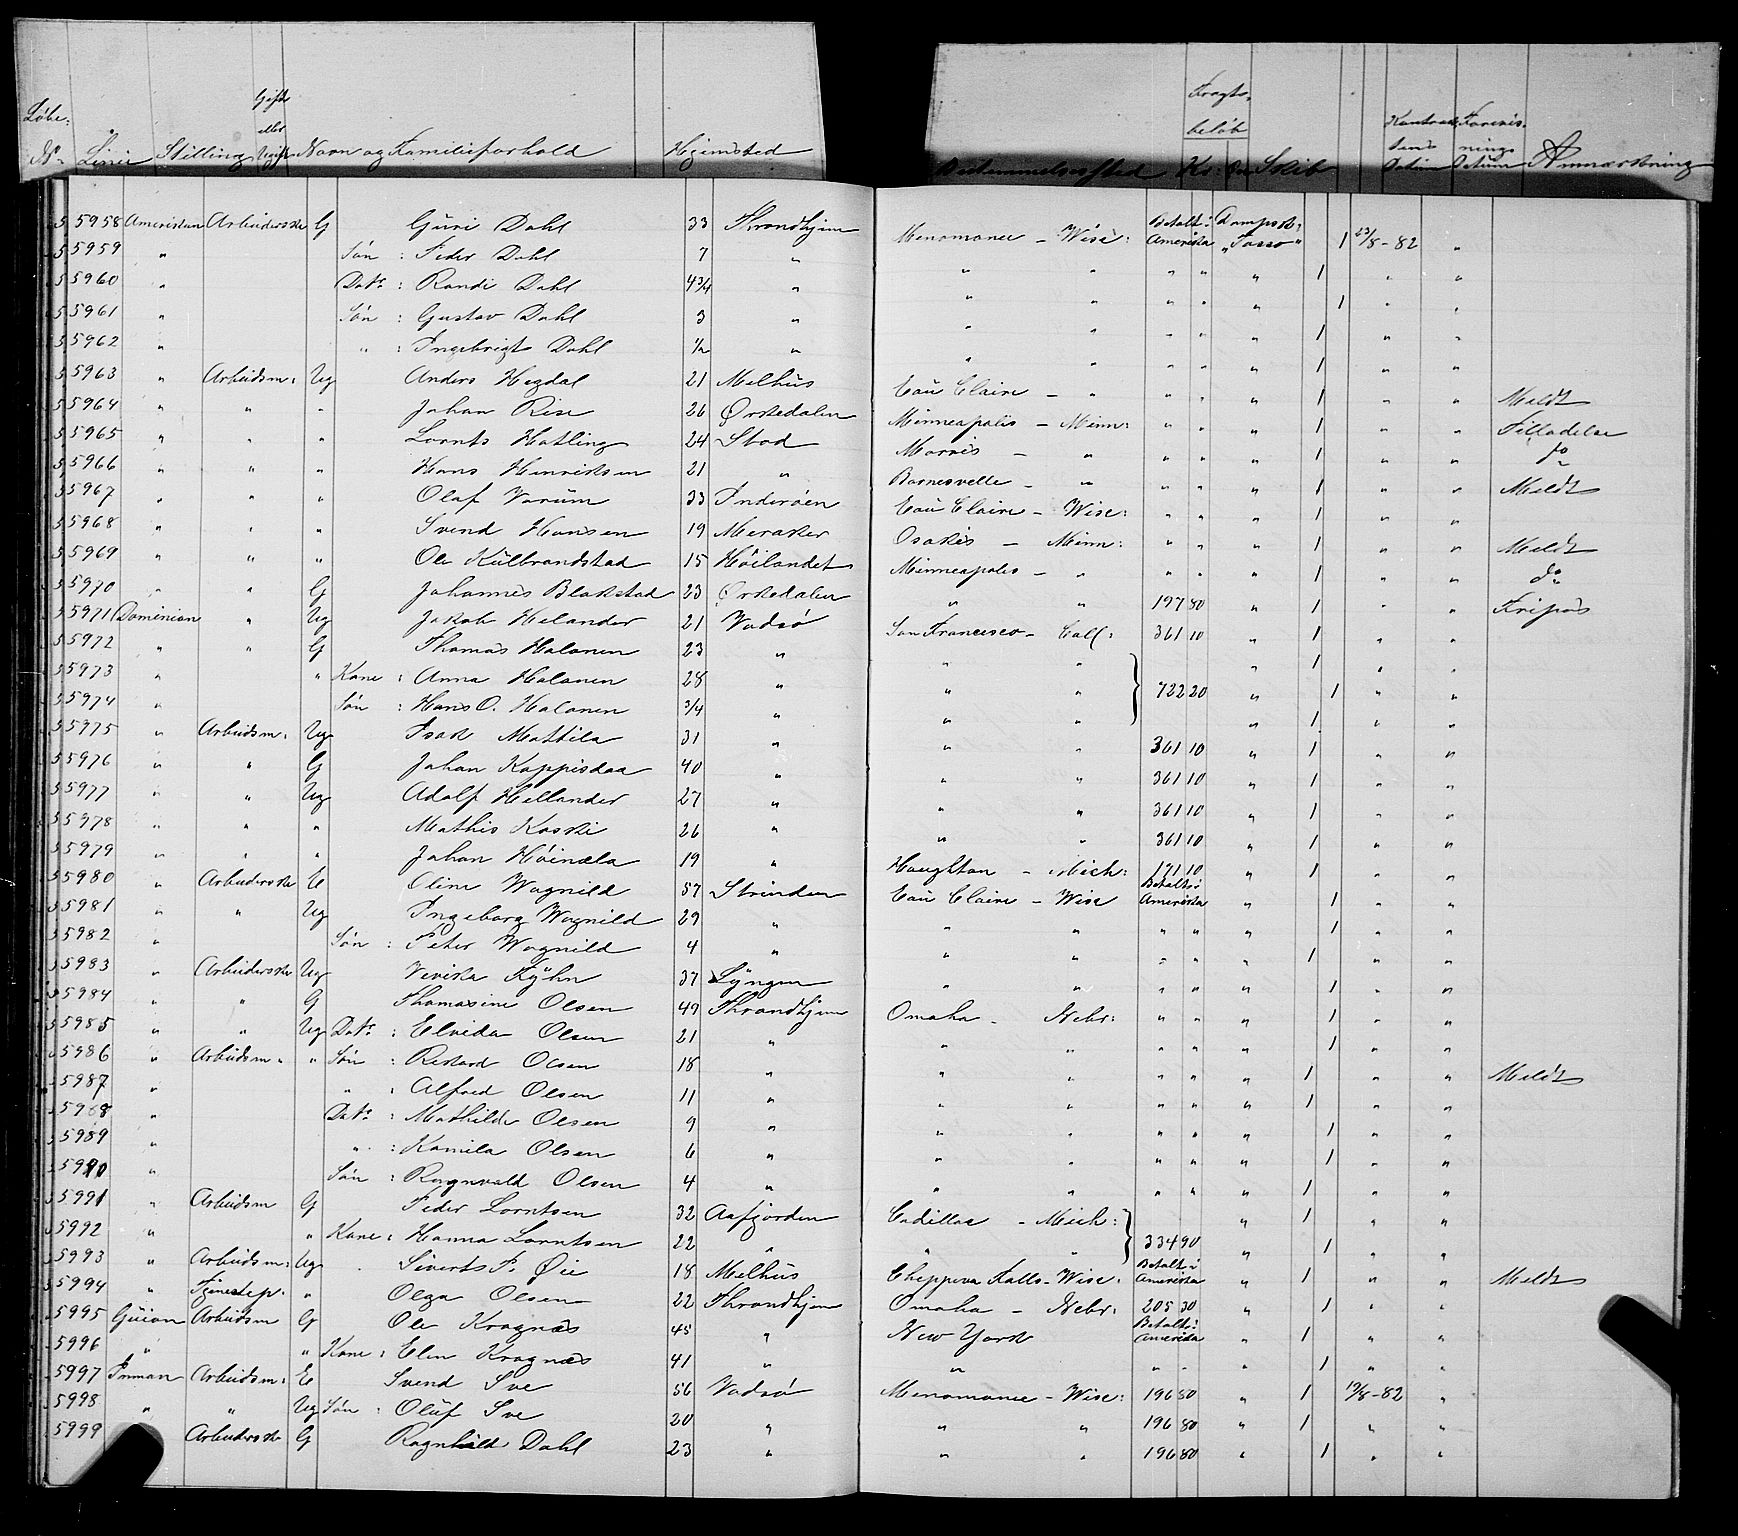 Løbe: Nr. Linie Stilling Gift eller Ugift Navn og Familieforhold Hjemsted Bestemmelsessted Fragtbeløb Kr: Skib Datum Datum Anmærkning
5958 Amerikan Arbeiderske G Guri Dahl 33 Throndhjem Menomonee - Wisc: Betalt i Amerika Dampsk: "Tasso" 1 23/8-82 "
5959 " Søn : Peder Dahl 7 " " " " " " 1 " "
5960 " Datr : Randi Dahl 4 3/4 " " " " " " 1 " "
5961 " Søn : Gustav Dahl 3 " " " " " " 1 " "
5962 " " : Ingebrigt Dahl 1/2 " " " " " " 1 " "
5963 " Arbeidsm: Ug Anders Hegdal 21 Melhus Eau Claire - " " " " 1 " " Meldt
5964 " " " Johan Rise 26 Ørkedalen Minneapolis - Minn: " " " 1 " " Filladelse
5965 " " " Lornts Hatling 24 Stod Morris - " " " " 1 " " do
5966 " " " Hans Henriksen 21 " Barnesvelle - " " " " 1 " " Meldt
5967 " " " Olaf Vorum 33 Inderøen Eau Claire - Wisc: " " " 1 " "
5968 " " " Svend Hansen 19 Meraker Osakis - Minn: " " " 1 " " Meldt
5969 " " " Ole Kulbrandstad 15 Høilandet Minneapolis - " " " " 1 " " do
5970 " " G Johannes Blokstad 23 Ørkedalen " " 197 80 " 1 " " Fripas
5971 Dominion " Ug Jakob Helander 21 Vadsø San Francisco - Calf: 361 10 " 1 " "
5972 " " G Thomas Halonen 23 " " " " 1 " "
5973 " " Kone : Anna Halonen 28 " " " 722 20 " 1 " "
5974 " Søn : Hans O. Halonen 3/4 " " " " 1 " "
5975 " Arbeidsm: Ug Isak Mattila 31 " " " 361 10 " 1 " "
5976 " " G Johan Kappisdaa 40 " " " 361 10 " 1 " "
5977 " " Ug Adolf Hellander 27 " " " 361 10 " 1 " "
5978 " " " Mathis Koski 26 " " " 361 10 " 1 " "
5979 " " " Johan Høinala 19 " Houghton - Mich: 171 10 " 1 " "
5980 " Arbeiderske E Oline Wognild 57 Strinden Eau Claire - Wisc Betalt i Amerika " 1 " "
5981 " " Ug Ingeborg Wognild 29 " " " " " " 1 " "
5982 " Søn : Peter Wognild 4 " " " " " " 1 " "
5983 " Arbeiderske Ug Vevika Kyhn 37 Lyngen " " " " " 1 " "
5984 " " G Thomasine Olsen 49 Throndhjem Omaha - Nebr: " " " 1 " "
5985 " " Ug Datr : Elvida Olsen 21 " " " " " " 1 " "
5986 " Arbeidsm " " Søn : Rikard Olsen 18 " " " " " " 1 " " Meldt
5987 " " : Alfred Olsen 11 " " " " " " 1 " "
5988 " Datr : Mathilde Olsen 9 " " " " " " 1 " "
5989 " " : Kamila Olsen 6 " " " " " " 1 " "
5990 " Søn : Rognvald Olsen 4 " " " " " " 1 " "
5991 " Arbeidsm G Peder Lorntsen 32 Aafjorden Cadillac - Mich: " 1 " "
5992 " " Kone : Hanna Lorntsen 22 " " " 334 90 " 1 " "
5993 " Arbeidsm: Ug Siverts P. Øie 18 Melhus Cheppeva Falls - Wisc: Betalt i Amerika " 1 " " Meldt
5994 " Tjenestep. " Olga Olsen 22 Throndhjem Omaha - Nebr: 205 30 " 1 " "
5995 Guion Arbeidsm G Ole Kragnæs 45 " New York Betalt i Amerika " 1 " "
5996 " " Kone : Elen Kragnæs 41 " " " " " 1 " "
5997 Inman Arbeidsm: E Svend Sve 56 Vadsø Menomonee - Wisc: 196 80 " 1 19/8-82 "
5998 " " Ug Søn : Oluf Sve 20 " " " 196 80 " 1 " "
5999 Arbeiderske G Ragnhild Dahl 23 " " " 196 80 " 1 " "